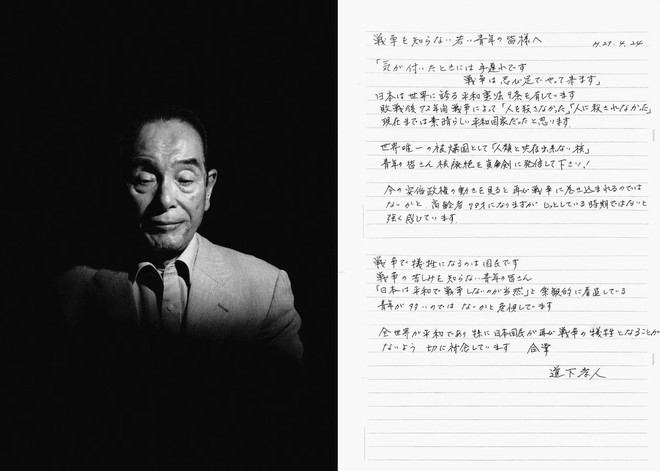 戦争を知らない若い青年の皆様へ H.29.4.24
「気が付いたときには手遅れです
戦争は忍び足でやって来ます」
日本は世界に誇る平和憲法9条を有しています
敗戦後72年間戦争によって「人を殺さなかった」「人に殺されなかった」
現在までは素晴らしい平和国家だったと思います
世界唯一の被爆国として「人類と共存出来ない核」
青年の皆さん核廃絶を真剣に発信して下さい!
今の安倍政権の動きを見ると再び戦争に巻き込まれるのでは
ないかと、高齢者 になりますが じっとしている時期ではないと
強く感じています
戦争で犠牲になるのは国民です
戦争の苦しみを知らない青年の皆さん
「日本は平和で戦争しないのが当然」と楽観的に看過している
青年が多いのではないかと危惧しています
全世界が平和であり 特に日本国民が再び戦争の犠牲となることが
ないよう 切に祈念しています 合掌
道下